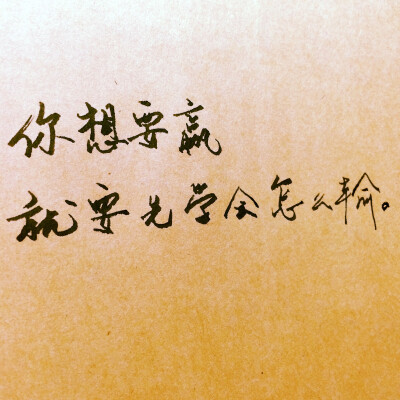 你想要赢
就要先学会怎么输。